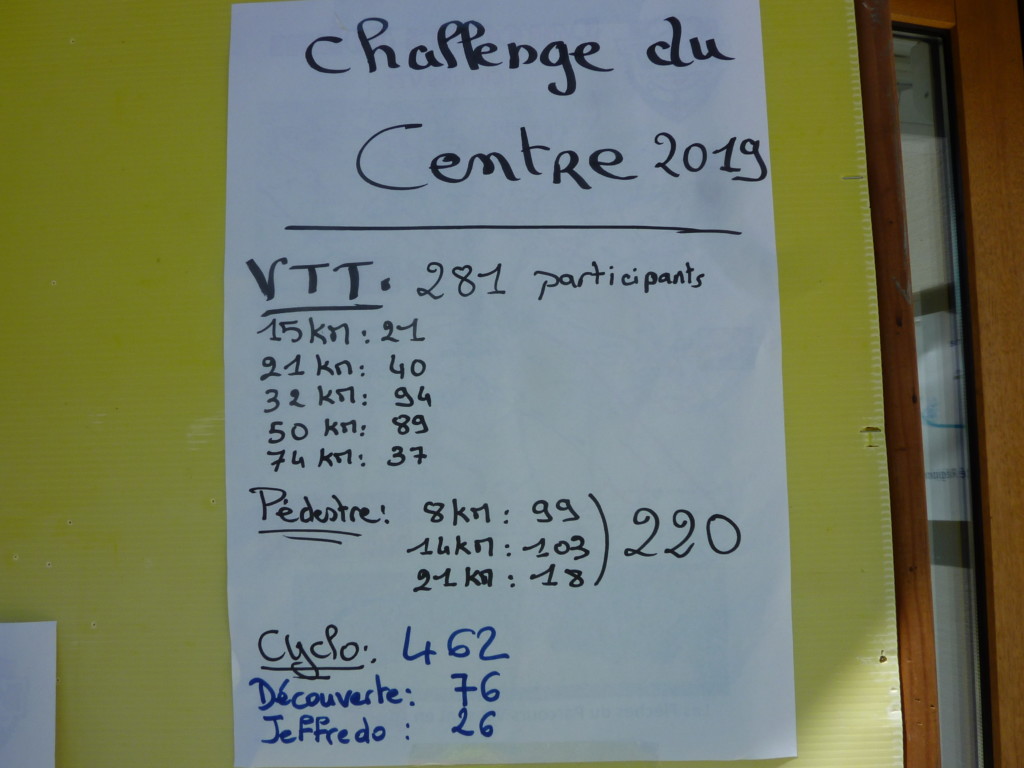 Challenge du
Centre 2019
VTT. 281 participants
15 km : 21
21 km : 40
32 km : 94
50 km : 89
74 km : 37
Pédestre : 8 km : 99
14 km : 103
21 km : 18
220
Cyclo : 462
Découverte : 76
Jeffredo : 26